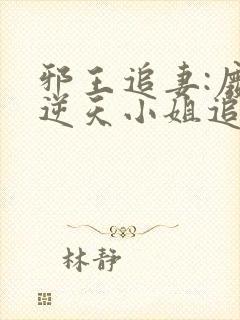 邪王追妻:
逆天小姐追
林静